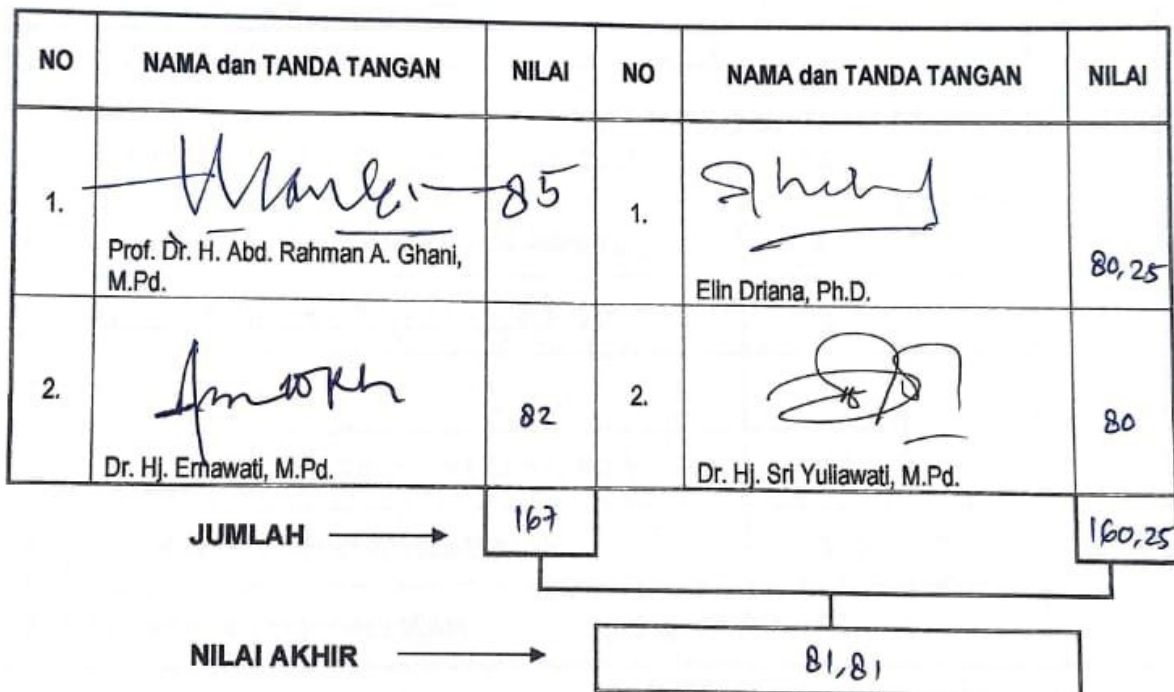 NO NAMA dan TANDA TANGAN NILAI NO NAMA dan TANDA TANGAN NILAI
1. 85 1. 80,25
Prof. Dr. H. Abd. Rahman A. Ghani,
M.Pd.
Elin Driana, Ph.D.
2. 82 2. 80
Dr. Hj. Ernawati, M.Pd. Dr. Hj. Sri Yuliawati, M.Pd.
JUMLAH 167 160,25
NILAI AKHIR 81,81